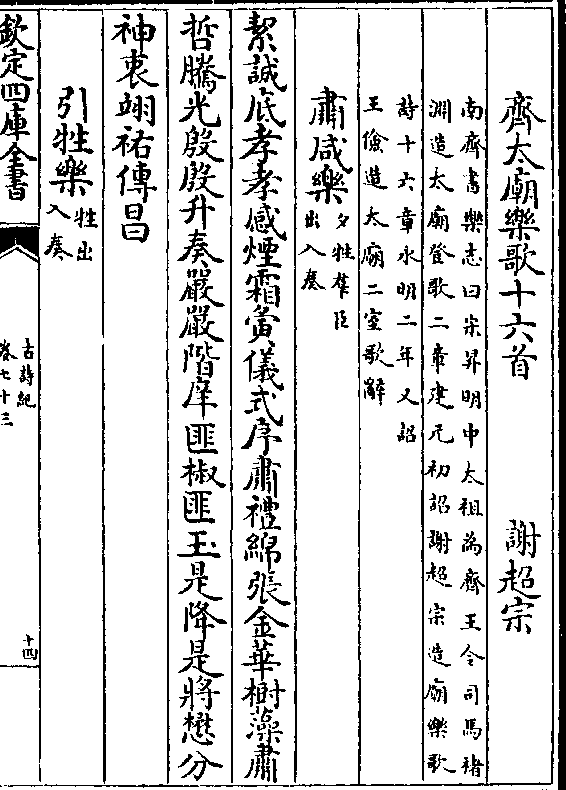 齊太廟樂歌十六首 謝超宗
南齊書樂志曰宋昇明中太祖為齊王令司馬褚
淵造太廟登歌二章建元初詔謝超宗造廟樂歌
詩十六章永明二年又詔
王儉造太廟二室歌辭
肅咸樂 夕牲羣臣
出入奏
絜誠底孝孝感煙霜夤儀式序肅禮綿張金華樹藻肅
哲騰光殷殷升奏嚴嚴階庠匪椒匪玉是降是將懋分
神衷翊祐傳昌
引牲樂 牲出
入奏
欽定四庫全書
古詩紀
卷七十三
十四